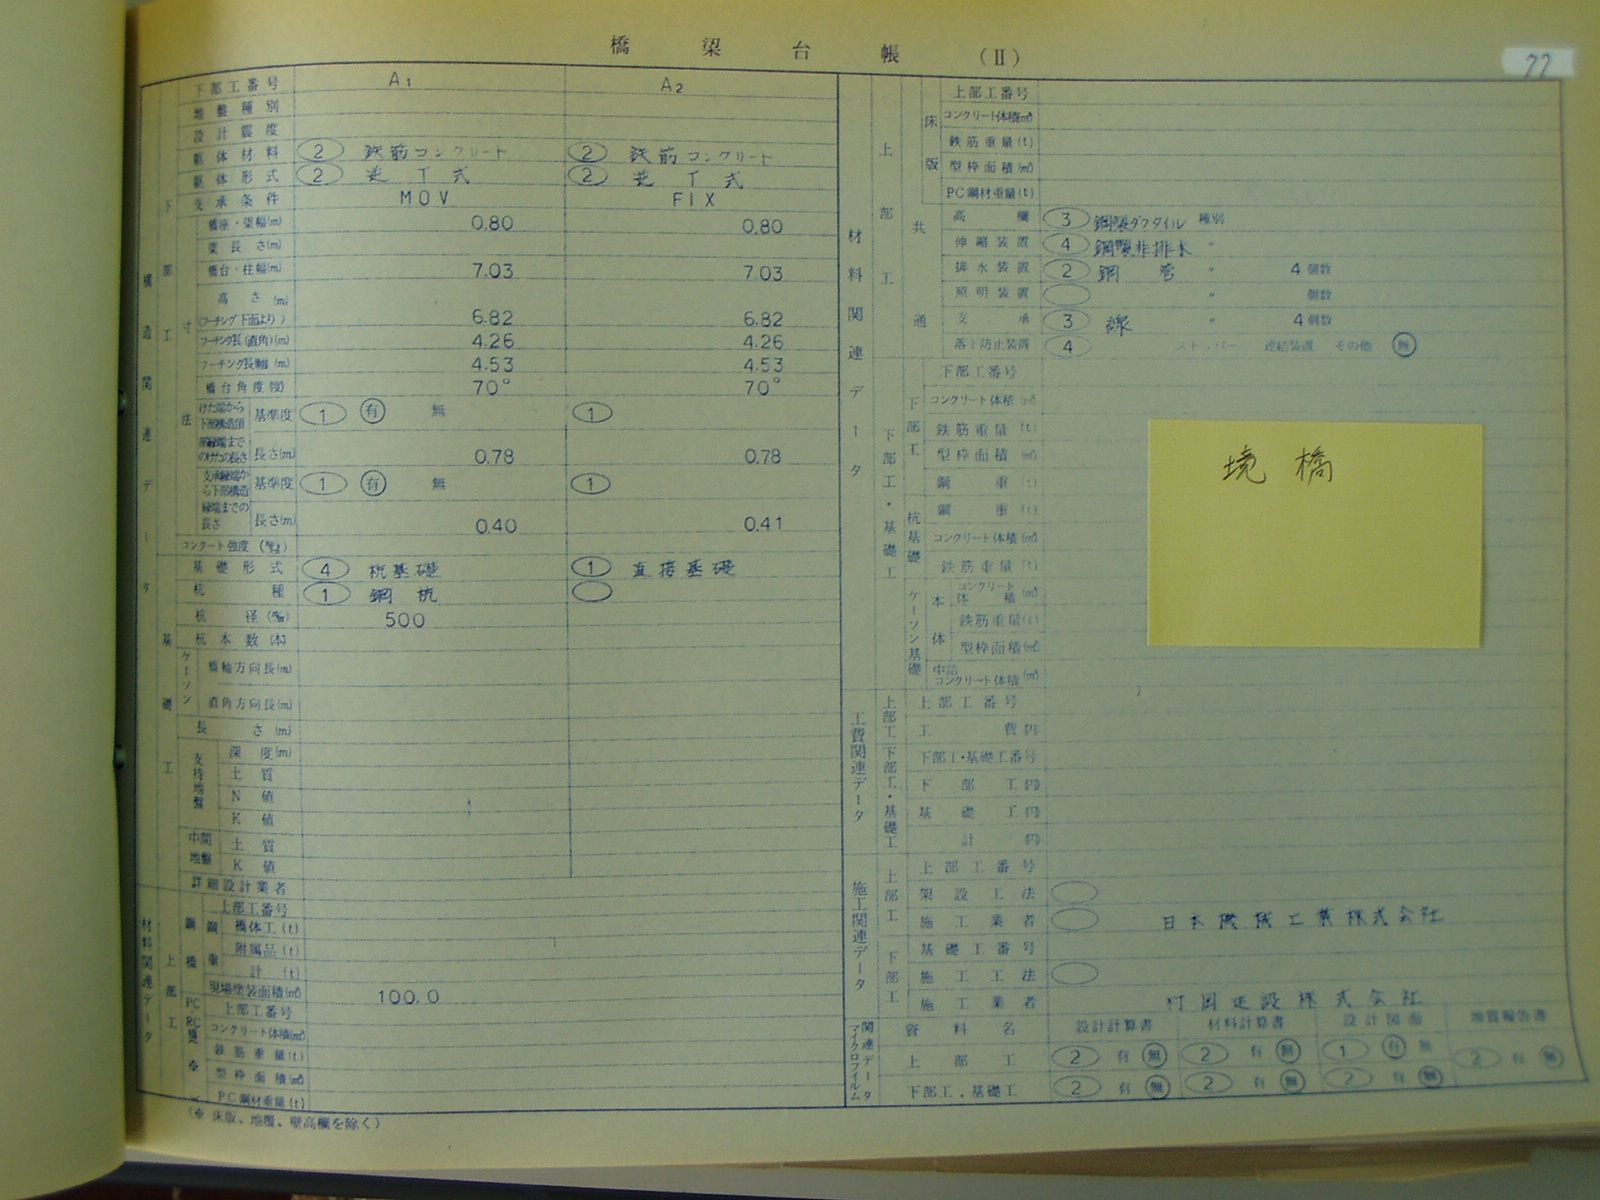 橋梁台帳(II)
77
下部工番号 A1 A2
地盤種別
設計震度
躯体材料 2 鉄筋コンクリート 2 鉄筋コンクリート
躯体形式 2 逆T式 2 逆T式
支承条件 MOV FIX
橋座・梁幅(m) 0.80 0.80
梁長さ(m)
橋台・柱幅(m) 7.03 7.03
高さ(m)
(フーチング下面より) 6.82 6.82
フーチング長(直角)(m) 4.26 4.26
フーチング長(橋軸)(m) 4.53 4.53
橋台角度(度) 70° 70°
けた端から下部構造頂部縁端までのけたの長さ
基準度 1 有 無 1
長さ(m) 0.78 0.78
支承縁端から下部構造縁端までの長さ
基準度 1 有 無 1
長さ(m) 0.40 0.41
コンクート強度
基礎形式 4 杭基礎 1 直接基礎
杭種 1 鋼杭
杭径 500
杭本数(本)
ケーソン
橋軸方向長(m)
直角方向長(m)
長さ(m)
支持地盤
深度(m)
土質
N値
K値
中間地盤
土質
K値
詳細設計業者
構造関連データ
下部工
寸法
基礎工
材料関連データ
上部工
鋼橋
鋼重
上部工番号
橋体工(t)
附属品(t)
計(t)
現場塗装面積(㎡) 100.0
PC RC橋 ※
上部工番号
コンクリート体積(㎥)
鉄筋重量(t)
型枠面積(㎡)
PC鋼材重量(t)
(※ 床版、地覆、壁高欄を除く)
材料関連データ
上部工
床版
上部工番号
コンクリート体積(㎥)
鉄筋重量(t)
型枠面積(㎡)
PC鋼材重量(t)
共通
高欄 3 鋼製ダクタイル 種別
伸縮装置 4 鋼製非排水 〃
排水装置 2 鋼管 〃 4 個数
照明装置 〃 個数
支承 3 線 〃 4 個数
落下防止装置 4 ストッパー 連結装置 その他 無
下部工・基礎工
下部工
下部工番号
コンクリート体積(㎥)
鉄筋重量(t)
型枠面積(㎡)
鋼重(t)
杭基礎
鋼重(t)
コンクリート体積(㎥)
鉄筋重量(t)
ケーソン基礎
本体
コンクリート体積(㎥)
鉄筋重量(t)
型枠面積(㎡)
中詰コンクリート体積(㎥)
境橋
工費関連データ
上部工
上部工番号
工費(円)
下部工・基礎工
下部工・基礎工番号
下部工(円)
基礎工(円)
計(円)
施工関連データ
上部工
上部工番号
架設工法
施工業者 日本機械工業株式会社
下部工
基礎工番号
施工工法
施工業者 建設株式会社
関連データマイクロフイルム
資料名 設計計算書 材料計算書 設計図面 地質報告書
上部工 2 有 無 2 有 無 1 有 無 2 有 無
下部工・基礎工 2 有 無 2 有 無 2 有 無